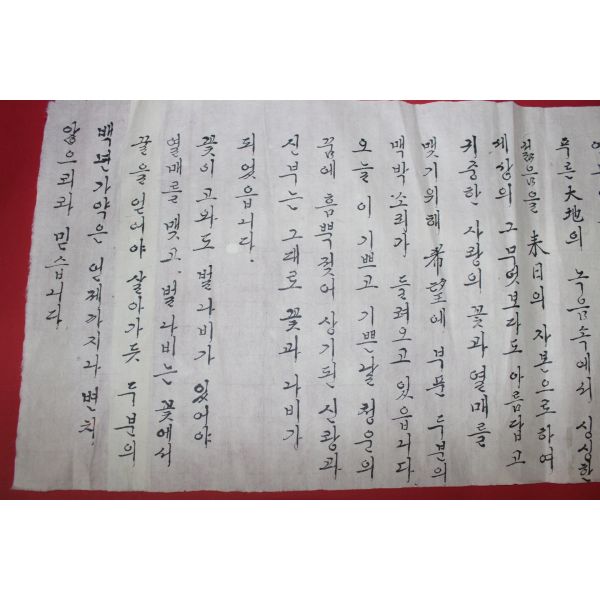 푸른 大地의 녹음속에서 싱싱한
젊음을 来日의 자본으로하여
세상의 그 무엇보다도 아름답고
귀중한 사랑의 꽃과 열매를
맺기위해 希望에 부푼 두분의
맥박소리가 들려오고 있읍니다
오늘 이 기쁘고 기쁜날 청운의
꿈에 흠뻑젖어 상기된 신랑과
신부는 그대로 꽃과 나비가
되었읍니다.
꽃이 고와도 벌 나비가 있어야
열매를 맺고. 벌 나비는 꽃에서
꿀을 얻어야 살아가듯 두분의
백년가약은 언제까지라 변치
않으리라 믿습니다.